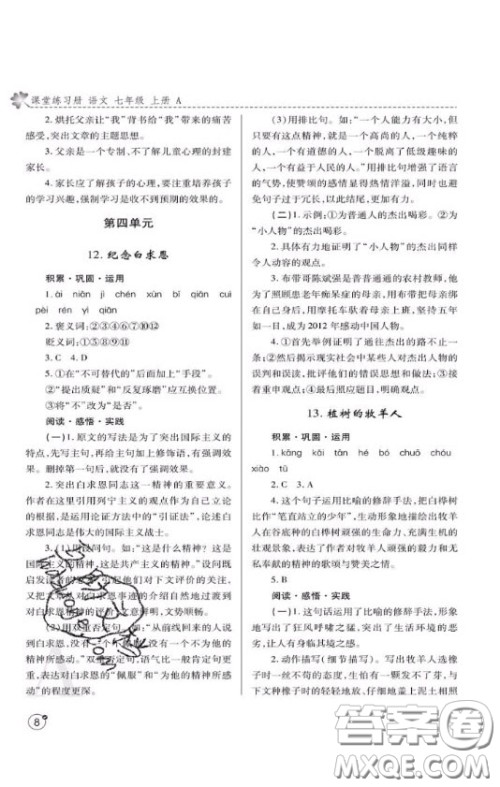 课堂练习册 语文 七年级 上册 A
2. 烘托父亲让“我”背书给“我”带来的痛苦
感受,突出文章的主题思想。
3. 父亲是一个专制、不了解儿童心理的封建
家长。
4. 家长应了解孩子的心理,要注重培养孩子
的学习兴趣,强制学习是收不到预期的效果的。
第四单元
12. 纪念白求恩
积累·巩固·运用
1. ài niǎn jì chén xùn bǐ qiān cuì
pèi rén yì qiān
2. 褒义词:②③④⑥⑦⑩⑫
贬义词:①⑤⑧⑨⑪
3. C 4. D
5. ①在“不可替代的”后加上“手段”。
②“提出质疑”和“反复琢磨”应互换位置。
③将“不”改为“是否”。
阅读·感悟·实践
(一)1. 原文的写法是为了突出国际主义的特
点,先写主句,再给主句加上修饰语,有强调效
果。删掉第一句后,就没有了这一效果。
2. 突出白求恩同志这一精神的重要意义。
作者在这里引用列宁主义的观点作为自己立论
的根据,是运用论证方法中的“引证法”,论述白
求恩同志是伟大的国际主义战士。
3. (1)用设问句。如:“这是什么精神?这是
国际主义的精神,这是共产主义的精神。”设问既
启发读者的思考,引起他们对下文评价的关注,
又起到对白求恩的评价意义鲜明,文势顺畅。
(2)用双重否定句。如:“从前线回来的人说到
白求恩,没有一个不佩服,没有一个不为他的
精神所感动。”双重否定句,语气比一般肯定句更
重,强调了对白求恩的“佩服”和“为他的精神所感
动”的程度更深。
8
(3)用排比句。如:“一个人能力有大小,但
只要有这点精神,就是一个高尚的人,一个纯粹的
人,一个有道德的人,一个脱离了低级趣味的人,
一个有益于人民的人。”用排比句增强了语言
的气势,使赞颂的感情显得热情洋溢,同时又避
免句子过于冗长,以此结尾,更加有力。
(二)1. 示例:①为普通人的杰出喝彩。②为
“小人物”的杰出喝彩。
2. 具体有力地证明了“小人物”的杰出同样
令人动容的观点。
3. 布带哥陈斌强是普普通通的农村教师,他
为了照顾患老年痴呆症的母亲,用布带把母亲绑
在自己身上,用摩托车驮着母亲上班,坚持五年
如一日,成为2012年感动中国人物。
4. ①首先举例证明了通往杰出的路不止一
条;②然后揭示现实社会中某些人对杰出人物的
误判和误读,并批评他们的错误思想和做法;③接着
重申观点;④最后照应题目,总结全文。
13. 植树的牧羊人
积累·巩固·运用
1. kāng kǎi tān hé bó chuō chóu
xiào tū
2. C 3. A
4. 这个句子运用比喻的修辞手法,把白桦树
比作“笔直站立的少年”,生动形象地描绘出牧羊
人在谷底种的白桦树顽强的生命力、充满生机的
壮观景象,表现了作者对牧羊人顽强的毅力和无
私奉献的精神的歌颂与赞美之情。
5. B
阅读·感悟·实践
1. 这个句话运用了比喻的修辞手法,生动形
象地写出了狂风呼啸之猛,突出了生活环境的恶
劣,让人有身临其境之感。
2. 动作描写(细节描写)。表现了牧羊人选橡
子时一丝不苟的态度,有一种严肃的美,与
下文种橡子时的轻轻地放,仔细地盖上泥土相照
答案圈